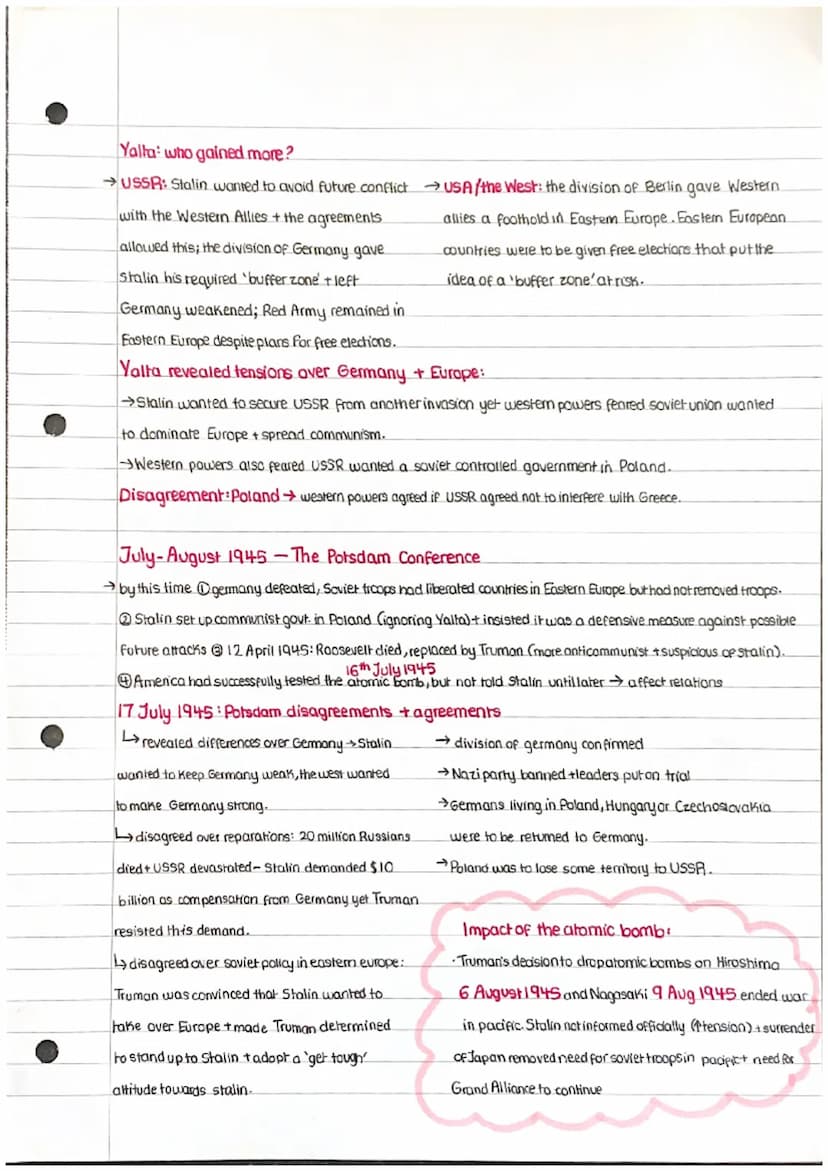 Yalta: who gained more?
→ USSR: Stalin wanted to avoid future conflict
with the Western Allies + the agreements
allowed this; the division of Germany gave
Stalin his required 'buffer zone' + left
Germany weakened; Red Army remained in
Eastern Europe despite plans for free elections.
→ USA/the West: the division of Berlin gave Western
allies a foothold in Eastern Europe. Eastern European
countries were to be given free elections that put the
idea of a 'buffer zone' at risk.
Yalta revealed tensions over Germany + Europe:
→ Stalin wanted to secure USSR from another invasion yet western powers feared soviet union wanted
to dominate Europe + spread communism.
→ Western powers also feared USSR wanted a soviet controlled government in Poland.
Disagreement: Poland → western powers agreed if USSR agreed not to interfere with Greece.
July-August 1945 – The Potsdam Conference
→ by this time ① germany defeated, Soviet troops had liberated countries in Eastern Europe but had not removed troops.
② Stalin set up communist govt. in Poland (ignoring Yalta) + insisted it was a defensive measure against possible
future attacks ③ 12 April 1945: Roosevelt died, replaced by Truman (more anticommunist + suspicious of stalin).
16th July 1945
④ America had successfully tested the atomic bomb, but not told Stalin until later → affect relations
17 July 1945: Potsdam disagreements + agreements
↳ revealed differences over Germany → Stalin
wanted to keep Germany weak, the west wanted
to make Germany strong.
↳ disagreed over reparations: 20 million Russians
died + USSR devastated – Stalin demanded $10
billion as compensation from Germany yet Truman
resisted this demand.
↳ disagreed over soviet policy in eastern europe:
Truman was convinced that Stalin wanted to
take over Europe + made Truman determined
to stand up to Stalin + adopt a 'get tough'
attitude towards stalin.
→ division of germany confirmed
→ Nazi party banned + leaders put on trial
→ Germans living in Poland, Hungary or Czechoslovakia
were to be returned to Germany.
→ Poland was to lose some territory to USSR.
Impact of the atomic bomb:
· Truman's decision to drop atomic bombs on Hiroshima
6 August 1945 and Nagasaki 9 Aug 1945 ended war
in pacific. Stalin not informed officially (↑tension) + surrender
of Japan removed need for soviet troops in pacific + need for
Grand Alliance to continue